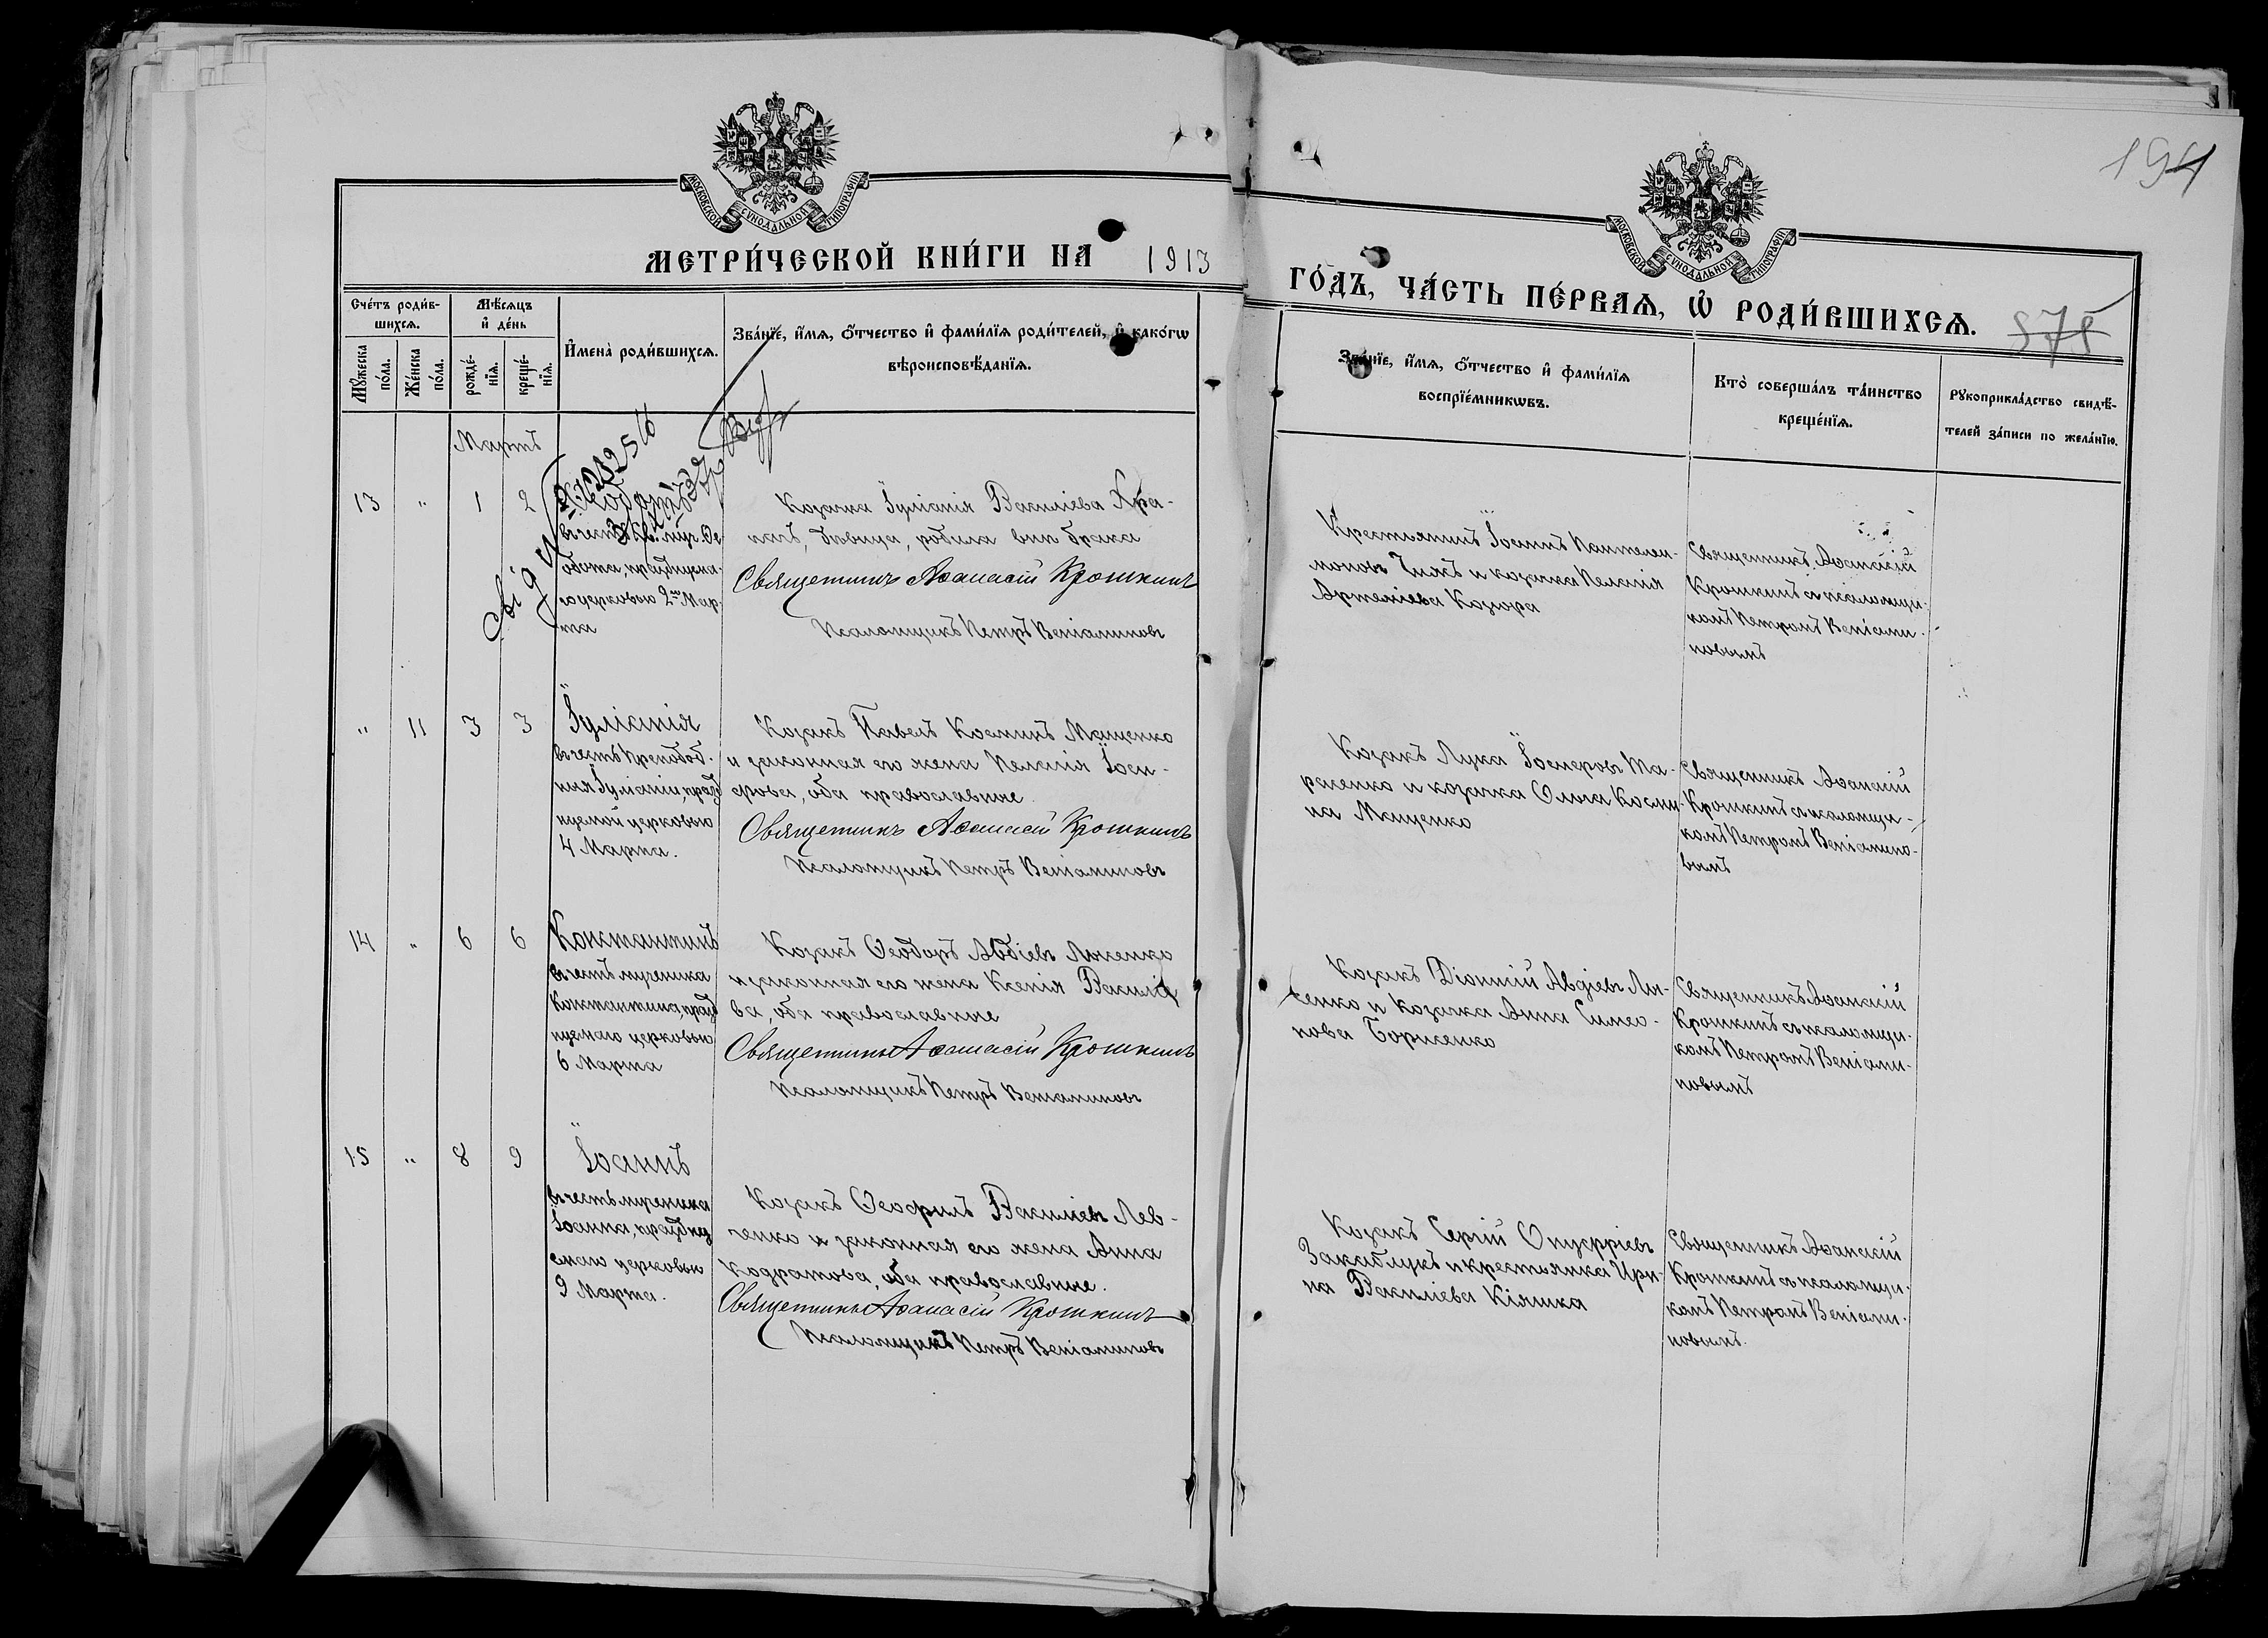 194
МОСКОВСКОЙ СѴНОДАЛЬНОЙ ТИПОГРАФІИ
МОСКОВСКОЙ СѴНОДАЛЬНОЙ ТИПОГРАФІИ
МЕТРИ́ЧЕСКОЙ КНИ́ГИ НА 1913
ГО́ДЪ, ЧА́СТЬ ПЕ́РВАЯ, Ѡ҆ РОДИ́ВШИХСѦ.
575
Сче́тъ роди́в-
шихсѧ.
Мꙋ́жеска по́ла.
Же́нска по́ла.
Мѣ́сѧцъ
и҆ де́нь
рожде́-
нїѧ.
креще́-
нїѧ.
И҆мена̀ роди́вшихсѧ.
Зва́нїе, и҆́мѧ, ѻ҆́тчество и҆ фами́лїѧ роди́телей, и҆ како́гѡ
вѣроисповѣ́данїѧ.
Зва́нїе, и҆́мѧ, ѻ҆́тчество и҆ фами́лїѧ
воспрїе́мникѡвъ.
Кто̀ соверша́лъ та́инство
креще́нїѧ.
Рꙋкоприкла́дство свидѣ́-
телей за́писи по жела́нїю.
Мартъ
13 " 1 2
Ѳеодотъ
въ честь Св. муч. Ѳе-
одота, празднуема-
го церковью 2го Мар-
та
Козачка Іуліанія Василіева Хра-
пачъ, дѣвица, родила внѣ брака
Священникъ Аѳанасій Крошкинъ
Псаломщикъ Петръ Веніаминовъ
Крестьянинъ Іоаннъ Пантелеи-
моновъ Чижъ и козачка Пелагія
Артеміева Козюра
Священникъ Аѳанасій
Крошкинъ съ псаломщи-
комъ Петромъ Веніами-
новымъ
" 11 3 3
Іуліанія
въ честь Преподоб-
ныя Іуліаніи, празд
нуемой церковью
4 Марта.
Козакъ Павелъ Косминъ Маценко
и законная его жена Пелагія Іоси-
фова, оба православные.
Священникъ Аѳанасій Крошкинъ
Псаломщикъ Петръ Веніаминовъ
Козакъ Лука Іосифовъ Та-
расенко и козачка Ольга Косми-
на Маценко
Священникъ Аѳанасій
Крошкинъ съ псаломщи-
комъ Петромъ Веніамино-
вымъ
14 " 6 6
Константинъ
въ честь мученика
Константина, празд
нуемаго церковью
6 Марта
Козакъ Ѳеодоръ Авдіевъ Лысенко
и законная его жена Ксенія Василіе
ва, оба православные
Священникъ Аѳанасій Крошкинъ
Псаломщикъ Петръ Веніаминовъ
Козакъ Діонисій Авдіевъ Лы-
сенко и козачка Анна Симео-
нова Борисенко
Священникъ Аѳанасій
Крошкинъ съ псаломщи-
комъ Петромъ Веніами-
новымъ
15 " 8 9
Іоаннъ
въ честь мученика
Іоанна, празднуе
емаго церковью
9 Марта.
Козакъ Ѳеофилъ Василіевъ Лев-
ченко и законная его жена Анна
Кодратова, оба православные.
Священникъ Аѳанасій Крошкинъ
Псаломщикъ Петръ Веніаминовъ
Козакъ Сергій Онуфріевъ
Закаблукъ и крестьянка Ири-
на Василіева Кіяшка
Священникъ Аѳанасій
Крошкинъ съ псаломщи-
комъ Петромъ Веніами-
новымъ.